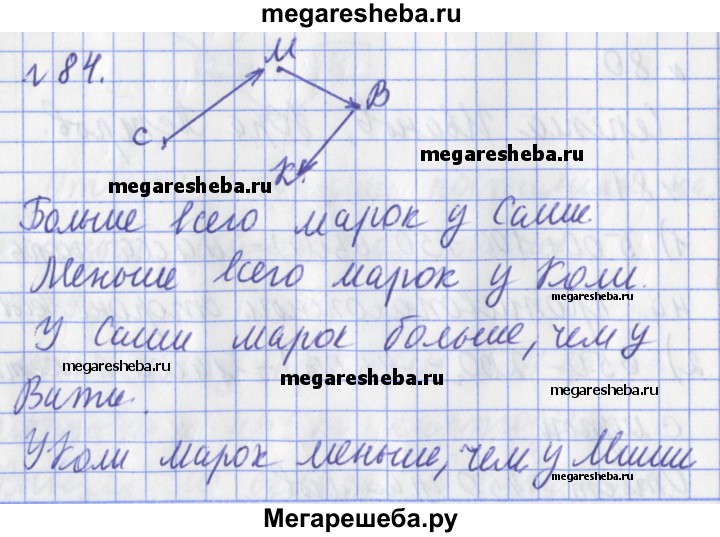 megaresheba.ru
№ 84.
М
В
С
К
megaresheba.ru
megaresheba.ru
Больше всего марок у Саши.
Меньше всего марок у Коли.
megaresheba.ru
У Саши марок больше, чем у
megaresheba.ru
megaresheba.ru
megaresheba.ru
Вити.
У Коли марок меньше, чем у Маши
megaresheba.ru
Мегарешеба.ру